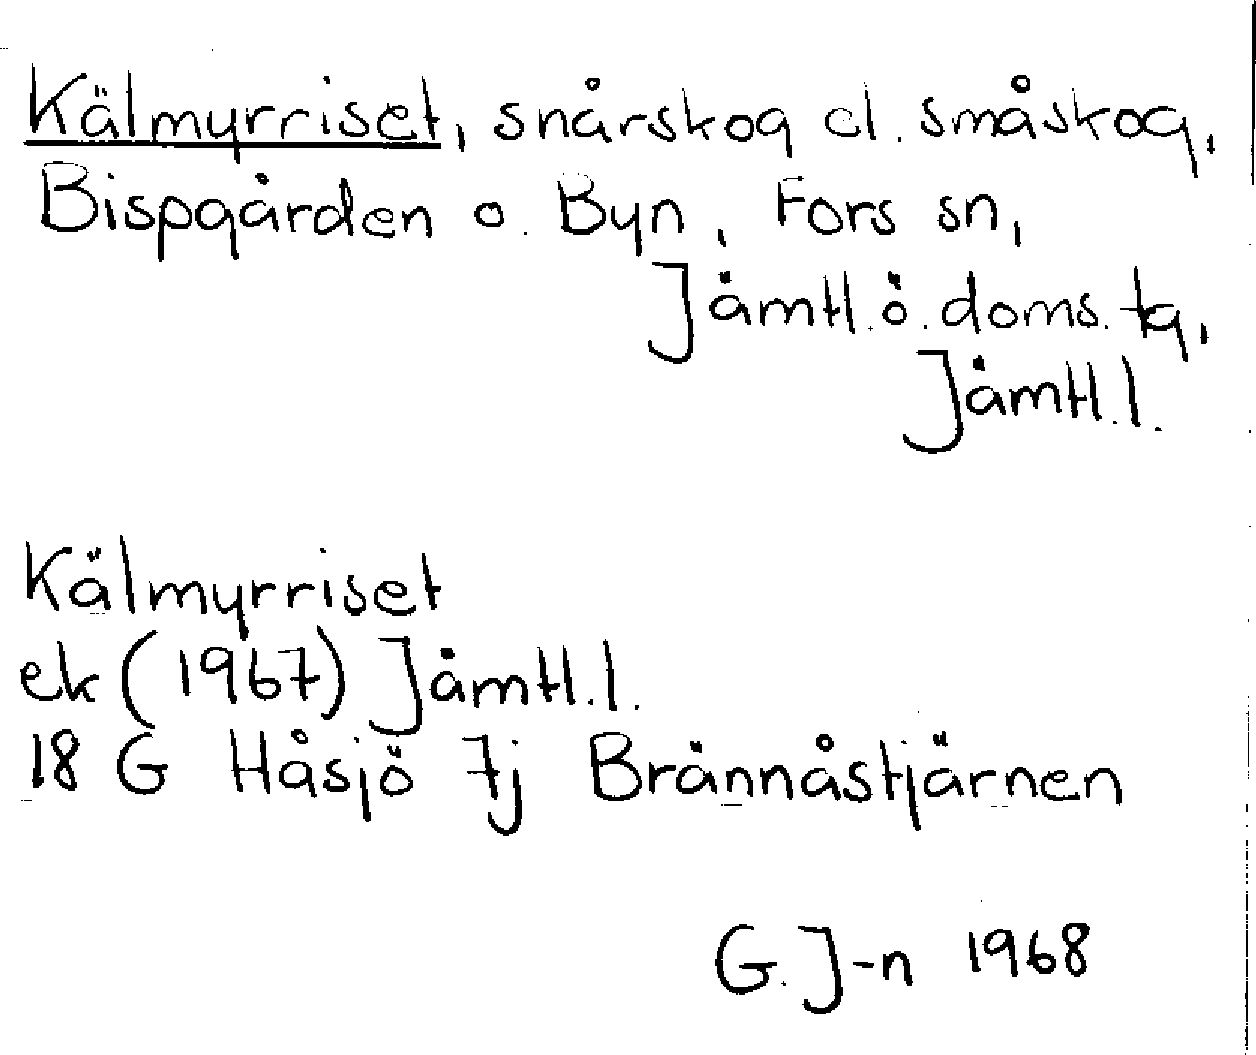 Kälmyrriset, snårskog el. småskog,
Bispgården o. Byn, Fors sn,
Jämtl. ö. doms. tg,
Jämtl. l.
Kälmyrriset
ek (1967) Jämtl. l.
18 G Håsjö 7j Brännåstjärnen
G. J-n 1968